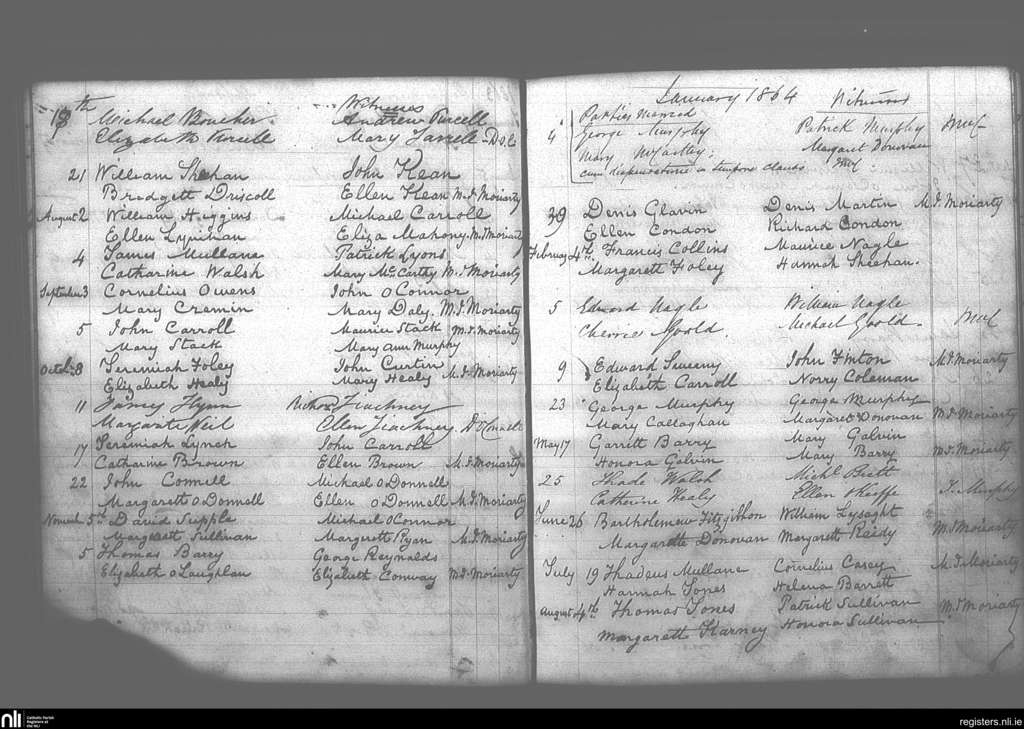 Witnesses
13th Michael Boucher Andrew Purcell
Elizabeth Purcell Mary Farrell
21 William Shehan John Kean
Bridgett Driscoll Ellen Kean M.D. Moriarty
August 2 William Higgins Michael Carroll
Ellen Lynihan Eliza Mahony M.D. Moriarty
4 James Mullane Patrick Lyons
Catharine Walsh Mary McCarthy M.D. Moriarty
September 3 Cornelius Owens John O Connor
Mary Cremin Mary Daly. M.D. Moriarty
5 John Carroll Maurice Stack M.D. Moriarty
Mary Stack Mary Ann Murphy
Octob. 8 Jeremiah Foley John Curtin
Elizabeth Healy Mary Healy M.D. Moriarty
11 Flynn
Margaret Neil Ellen
17 Jeremiah Lynch John Carroll
Catharine Brown Ellen Brown M.D. Moriarty
22 John Connell Michael O Donnell
Margarett O Donnell Ellen O Donnell M.D. Moriarty
Novemb. 5th David Supple Michael O Connor
Margarett Sullivan Margrett Ryan M.D. Moriarty
5 Thomas Barry George Reynalds
Elizabeth O Laughlan Elizabeth Conway M.D. Moriarty
January 1864 Witnesses
Parties Married
4 George Murphy Patrick Murphy
Mary McCartey Margaret Donovan
cum dispensatione in tempore clauso
29 Denis Glavin Denis Martin M.D. Moriarty
Ellen Condon Richard Condon
February 4th. Francis Collins Maurice Nagle
Margarett Foley Hannah Sheehan.
5 Edward Nagle William Nagle
Goold. Michael Goold.
9 Edward Sweeny John Finton M.D. Moriarty
Elizabeth Carroll Norry Coleman
23 George Murphy George Murphy
Mary Callaghan Margaret Donovan M.D. Moriarty
May 17 Garrett Barry Mary Galvin
Honora Galvin Mary Barry M.D. Moriarty
25 Thade Walsh Michl Brett
Catherine Healy Ellen O'Keeffe J. Murphy
June 26 Bartholemew Fitzgibbon William Lysaght
Margarette Donovan Margarett Reidy M.D. Moriarty
July 19 Thadeus Mullane Cornelius Casey M.D. Moriarty
Hannah Jones Helena Barrett
August 4th Thomas Jones Patrick Sullivan M.D. Moriarty
Margarett Karney Honora Sullivan
nli Catholic Parish Registers at the NLI
registers.nli.ie